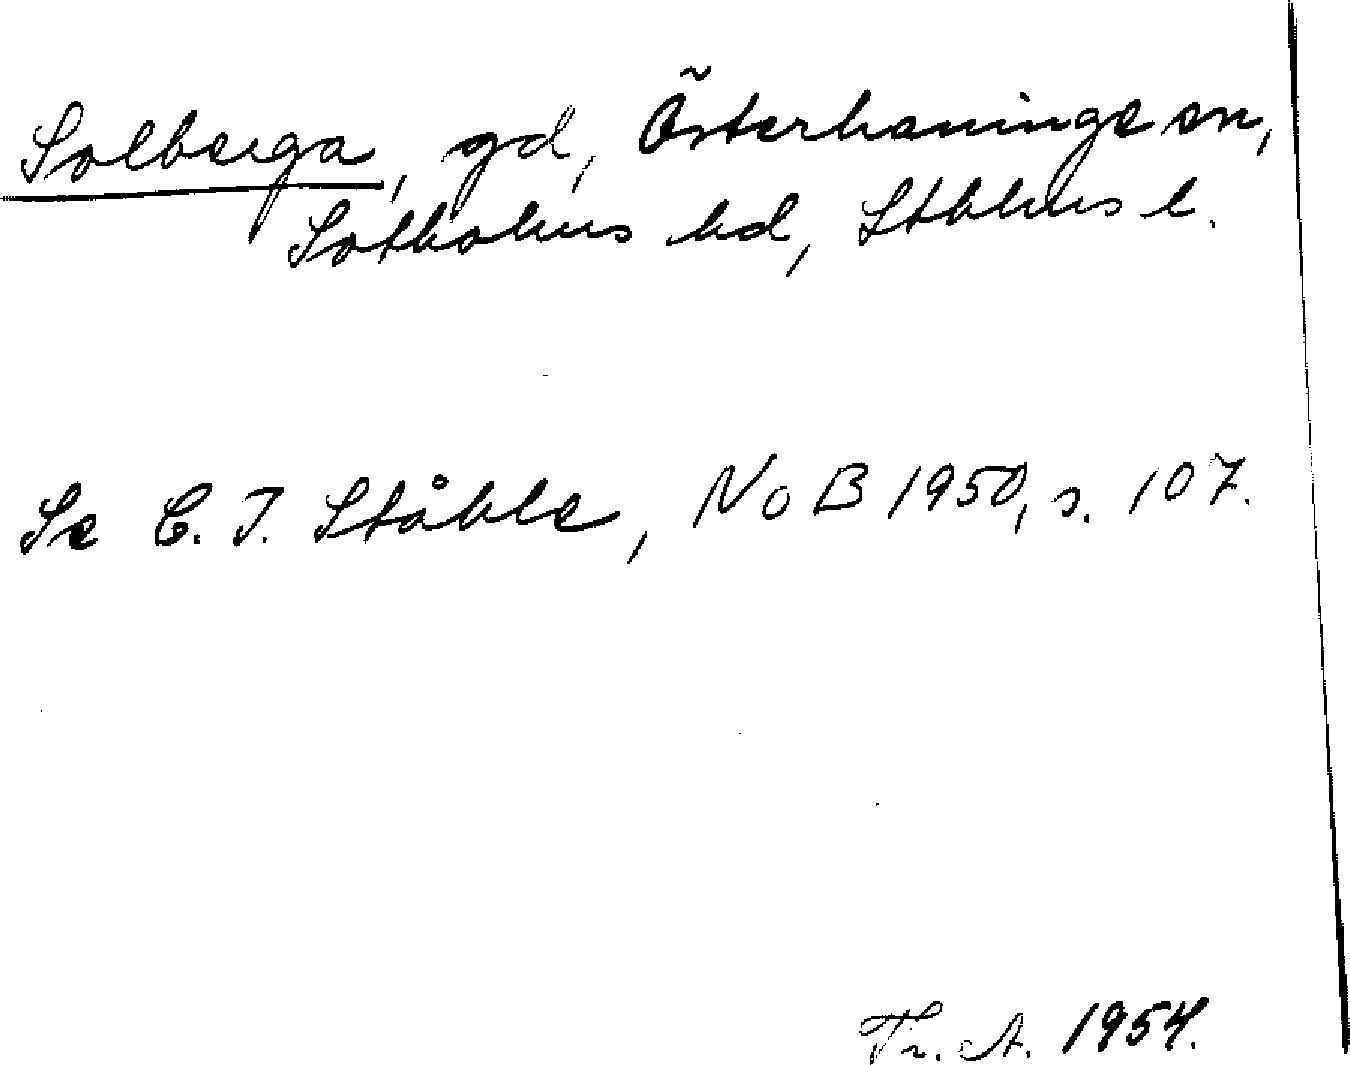 Solberga, gd, Österhaninge sn,
Sotholms hd, Sthlms l.
Se C. I. Ståhle, NoB 1950, s. 107.
Fr. A. 1954.